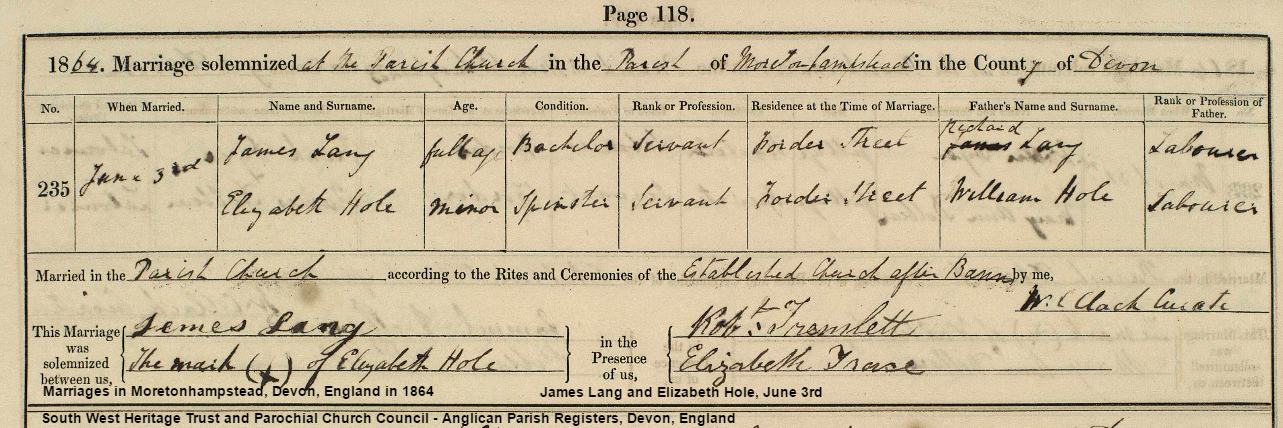 Page 118.
1864. Marriage solemnized at the Parish Church in the Parish of Moretonhampstead in the County of Devon
No. When Married. Name and Surname. Age. Condition. Rank or Profession. Residence at the Time of Marriage. Father's Name and Surname. Rank or Profession of Father.
235 June 3rd James Lang full age Bachelor Servant Forder Street Richard James Lang Labourer
Elizabeth Hole minor Spinster Servant Forder Street William Hole Labourer
Married in the Parish Church according to the Rites and Ceremonies of the Established Church after Banns by me,
W. C Clack Curate
This Marriage was solemnized between us, James Lang in the Presence of us, Robt.
The mark (+) of Elizabeth Hole Elizabeth
Marriages in Moretonhampstead, Devon, England in 1864 James Lang and Elizabeth Hole, June 3rd
South West Heritage Trust and Parochial Church Council - Anglican Parish Registers, Devon, England